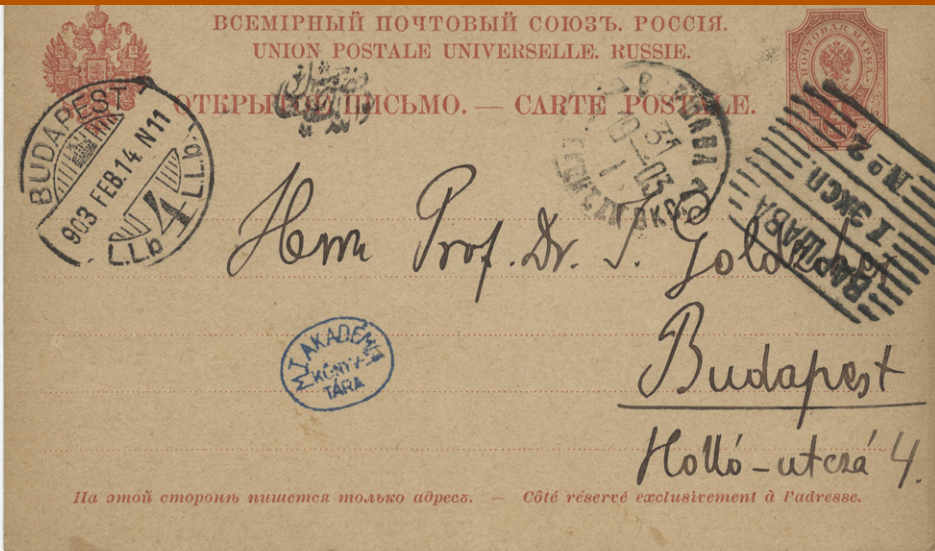 ВСЕМІРНЫЙ ПОЧТОВЫЙ СОЮЗЪ. РОССІЯ.
UNION POSTALE UNIVERSELLE. RUSSIE.
ОТКРЫТОЕ ПИСЬМО. — CARTE POSTALE.
ПОЧТОВАЯ МАРКА
BUDAPEST
903 FEB. 14 N 11
4
L.L.b.
L.L.b
31
1-03
ВАРШАВА
I ЭКСП.
№ 2
Herrn Prof. Dr. I. Goldziher
Budapest
Holló-utczá 4.
M.T. AKADÉMIA
KÖNYV
TÁRA
На этой сторонѣ пишется только адресъ. — Côté réservé exclusivement à l'adresse.